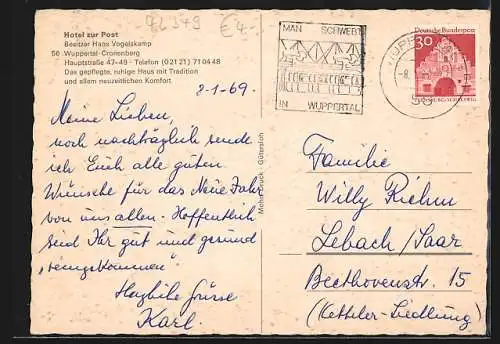 92349
€4.-
Hotel zur Post
Besitzer Hans Vogelskamp
56 Wuppertal-Cronenberg
Hauptstraße 47-49 - Telefon (02121) 710448
Das gepflegte, ruhige Haus mit Tradition
und allem neuzeitlichen Komfort
MAN SCHWEBT
IN WUPPERTAL
Deutsche Bundespost
30
8-1-69.
Meine Lieben,
noch nachträglich sende
ich Euch alle guten
Wünsche für das Neue Jahr
von uns allen. Hoffentlich
seid Ihr gut und gesund
"reingekommen"
Herzliche Grüsse
Karl.
Mohndruck Gütersloh
Familie
Willy Riehm
Lebach/Saar
Beethovenstr. 15
(Ketteler-Siedlung)